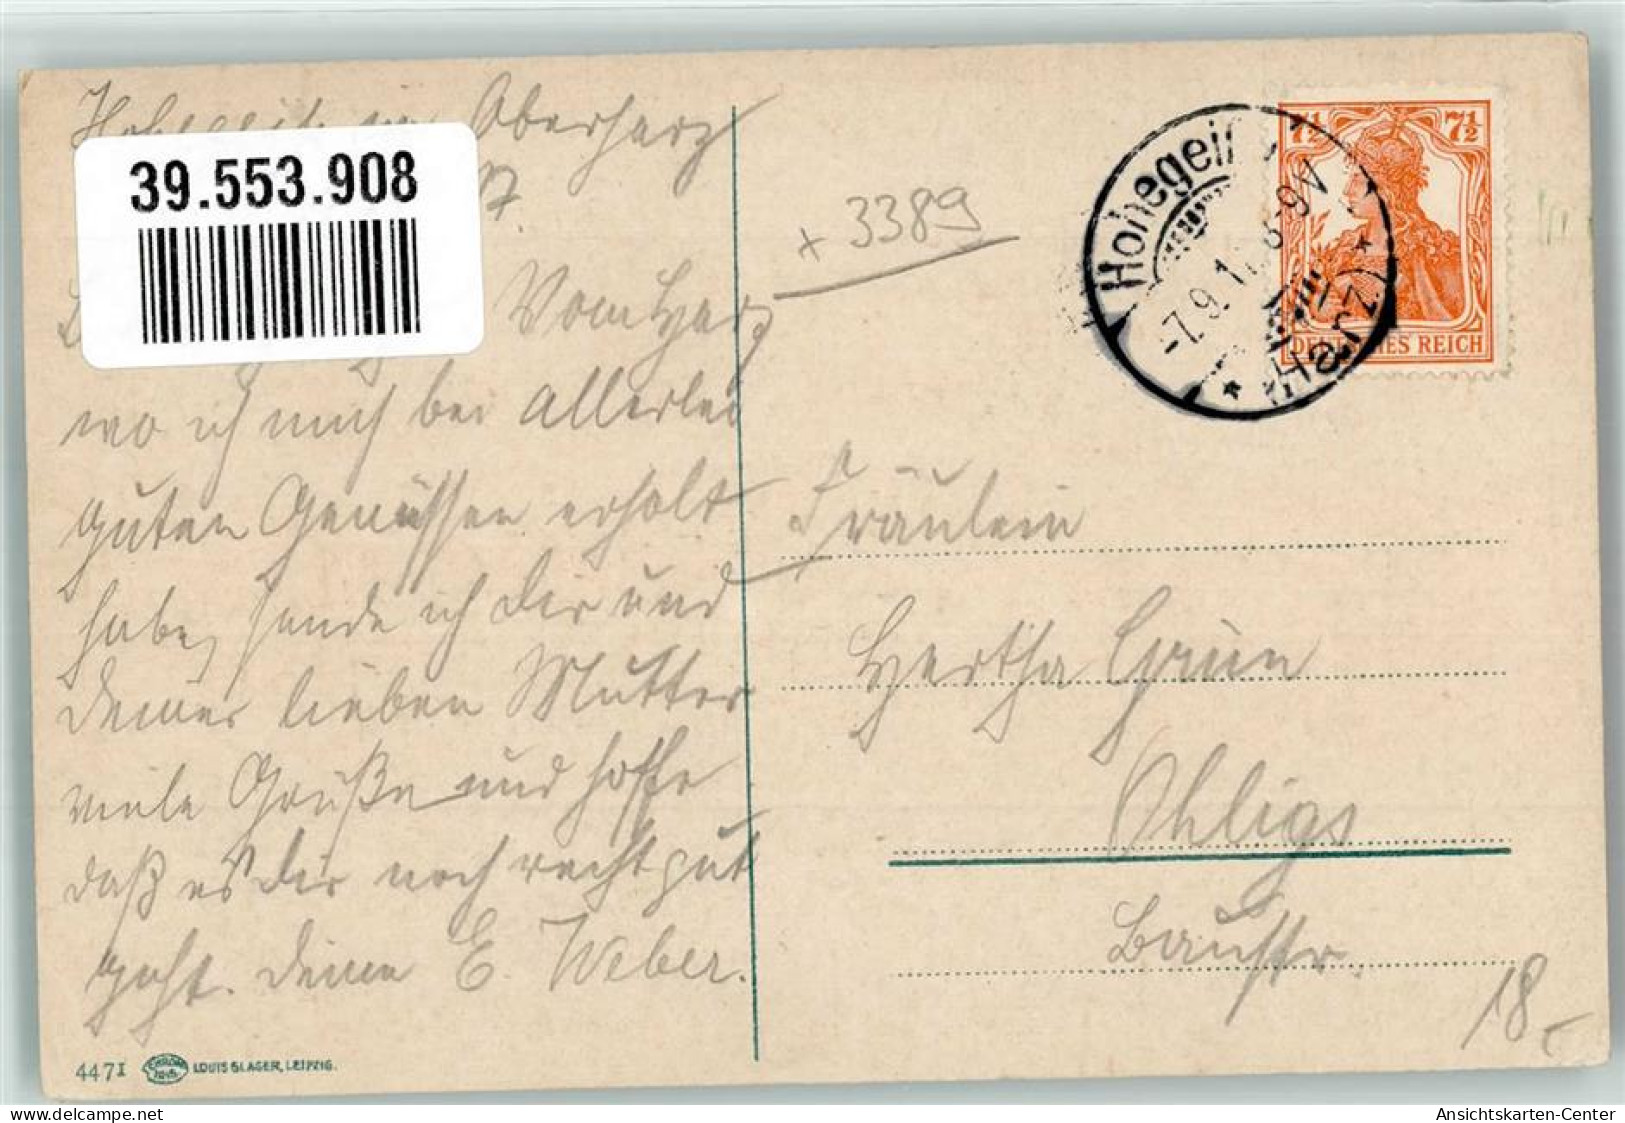 Hohegeiß im Oberharz
39.553.908
7.
Vom Harz
wo ich mich bei allerlei
guten Genüssen erholt
habe, sende ich Dir und
Deiner lieben Mutter
viele Grüße und hoffe
daß es Dir noch recht gut
geht. Deine E. Weber.
4471 LOUIS GLASER, LEIPZIG.
+ 3389
Hohegeiß
(Harz)
-7.9.1
8-9V
7½ 7½
DEUTSCHES REICH
Fräulein
Hertha Grün
Ohligs
Baustr.
18.-
delcampe.net
Ansichtskarten-Center